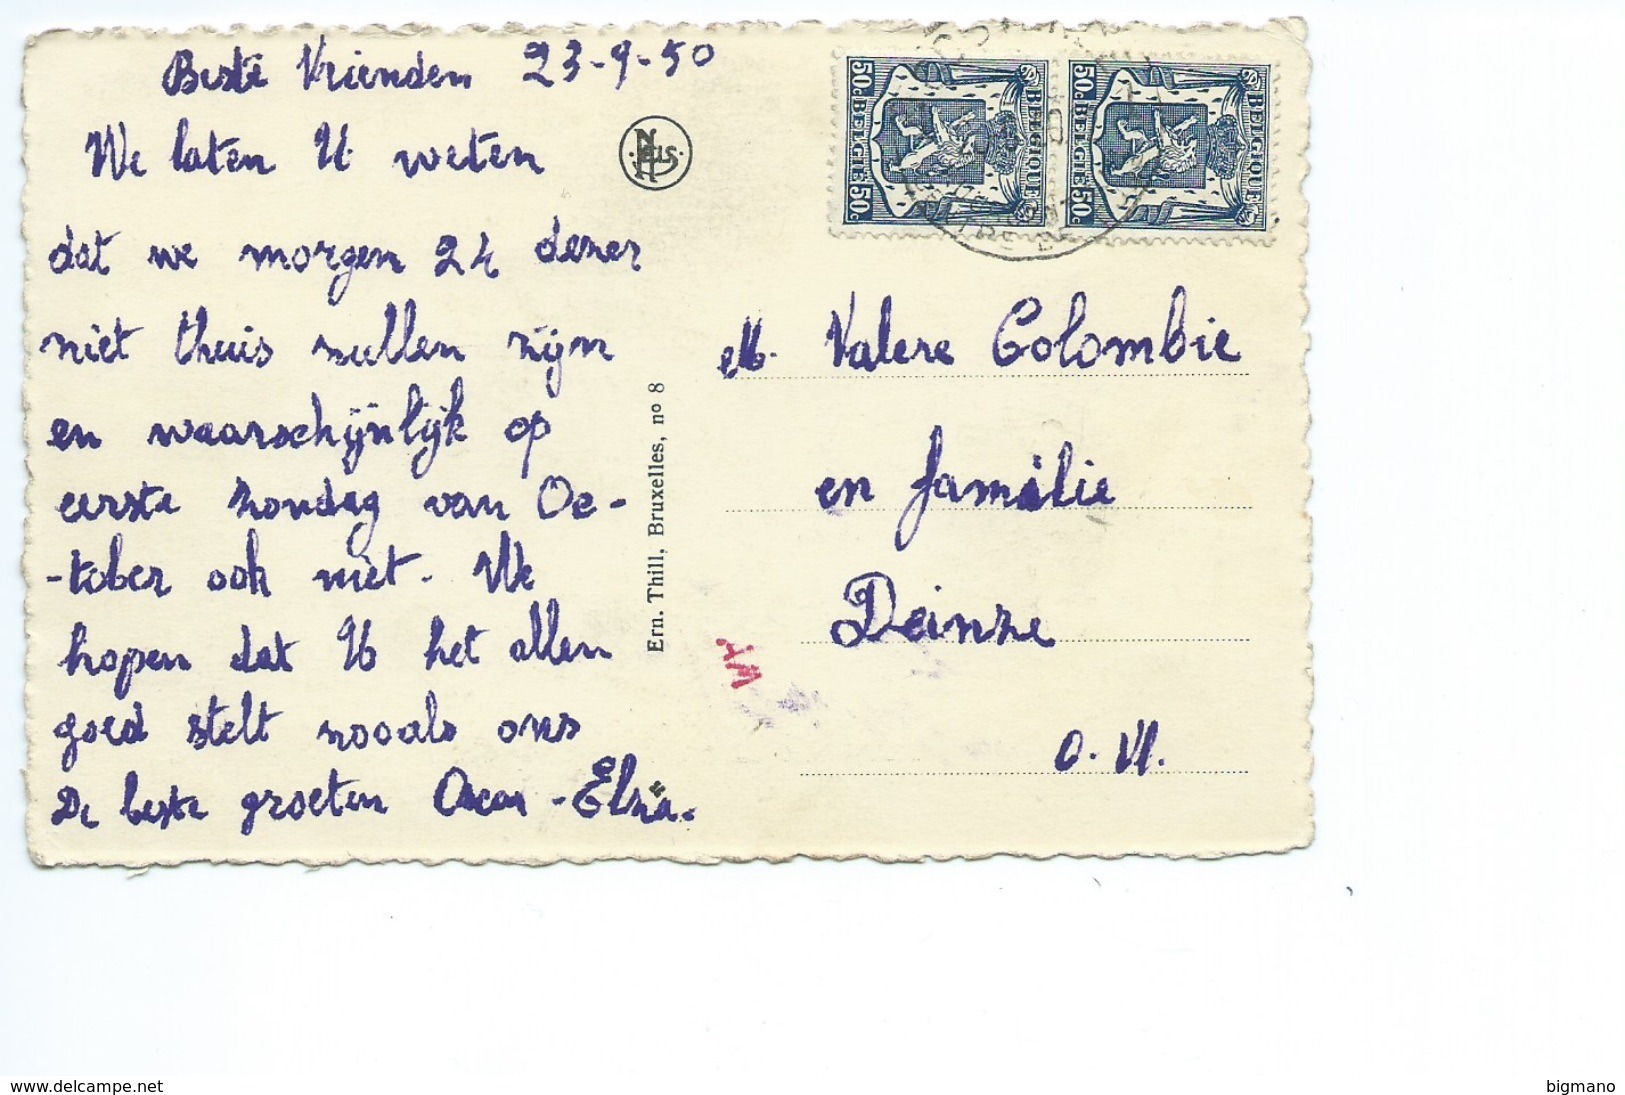 Beste Vrienden 23-9-50
We laten U weten
dat we morgen 24 dezer
niet thuis zullen zijn
en waarschijnlijk op
eerste zondag van Oc-
-tober ook niet. We
hopen dat U het allen
goed stelt zooals ons
De beste groeten Oscar - Elza.
Nels
Ern. Thill, Bruxelles, nº 8
BELGIQUE
50c BELGIE 50c
BELGIQUE
50c BELGIE 50c
M. Valere Colombie
en familie
Deinze
O. Vl.
AW
www.delcampe.net
bigmano